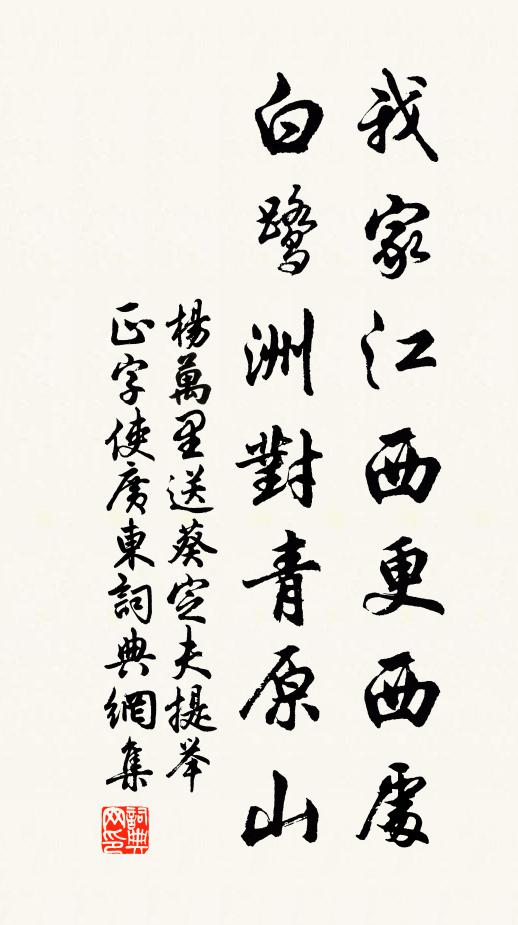 我家江西更西處
白鷺洲對青原山
楊萬里送葵定夫提举
正字使廣東詞典網集
詞典
网印